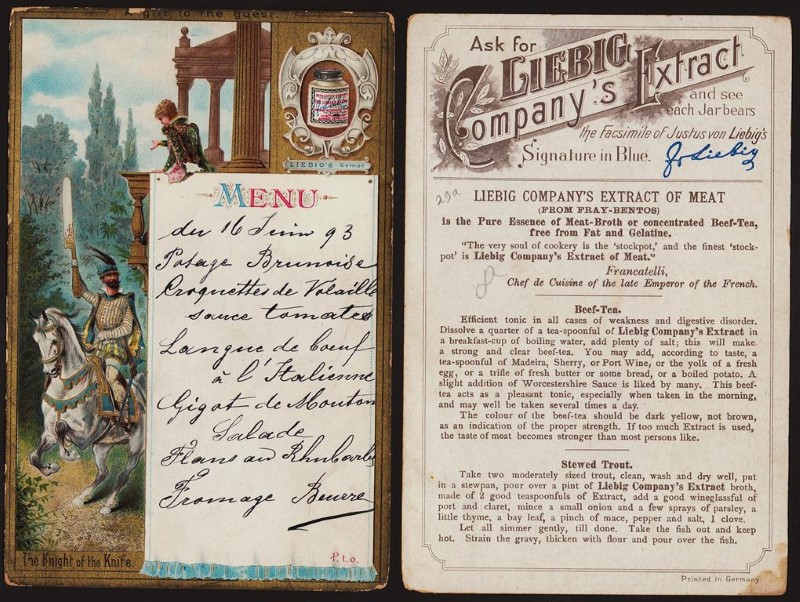 A gift to the guest.
LIEBIG'S Compy.
MENU
du 16 Juin 93
Potage Brunoise
Croquettes de Volaille
sauce tomates
Langue de boeuf
à l'Italienne
Gigot de Mouton
Salade
Flans au Rhubarbe
Fromage Beurre
The Knight of the Knife.
P.t.o.
Ask for LIEBIG
Company's Extract
and see
each Jar bears
the Facsimile of Justus von Liebig's
Signature in Blue. J v Liebig
29a
LIEBIG COMPANY'S EXTRACT OF MEAT
(FROM FRAY-BENTOS)
is the Pure Essence of Meat-Broth or concentrated Beef-Tea,
free from Fat and Gelatine.
"The very soul of cookery is the 'stockpot,' and the finest 'stock-
pot' is Liebig Company's Extract of Meat."
Francatelli,
Chef de Cuisine of the late Emperor of the French.
Beef-Tea.
Efficient tonic in all cases of weakness and digestive disorder.
Dissolve a quarter of a tea-spoonful of Liebig Company's Extract in
a breakfast-cup of boiling water, add plenty of salt; this will make
a strong and clear beef-tea. You may add, according to taste, a
tea-spoonful of Madeira, Sherry, or Port Wine, or the yolk of a fresh
egg, or a trifle of fresh butter or some bread, or a boiled potato. A
slight addition of Worcestershire Sauce is liked by many. This beef-
tea acts as a pleasant tonic, especially when taken in the morning,
and may well be taken several times a day.
The colour of the beef-tea should be dark yellow, not brown,
as an indication of the proper strength. If too much Extract is used,
the taste of meat becomes stronger than most persons like.
Stewed Trout.
Take two moderately sized trout, clean, wash and dry well, put
in a stewpan, pour over a pint of Liebig Company's Extract broth,
made of 2 good teaspoonfuls of Extract, add a good wineglassful of
port and claret, mince a small onion and a few sprays of parsley, a
little thyme, a bay leaf, a pinch of mace, pepper and salt, 1 clove.
Let all simmer gently, till done. Take the fish out and keep
hot. Strain the gravy, thicken with flour and pour over the fish.
Printed in Germany